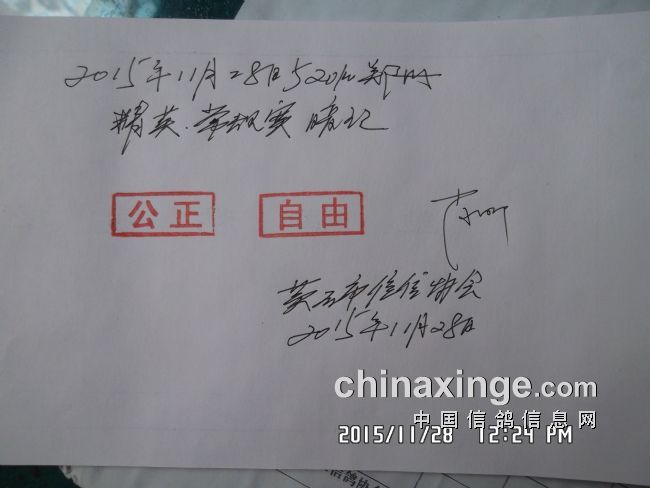 2015年11月28日520km郑州
精英.常规赛 暗记
公正 自由
市信鸽协会
2015年11月28日
chinaxinge.com
中国信鸽信息网
2015/11/28 12:24 PM
信鸽协